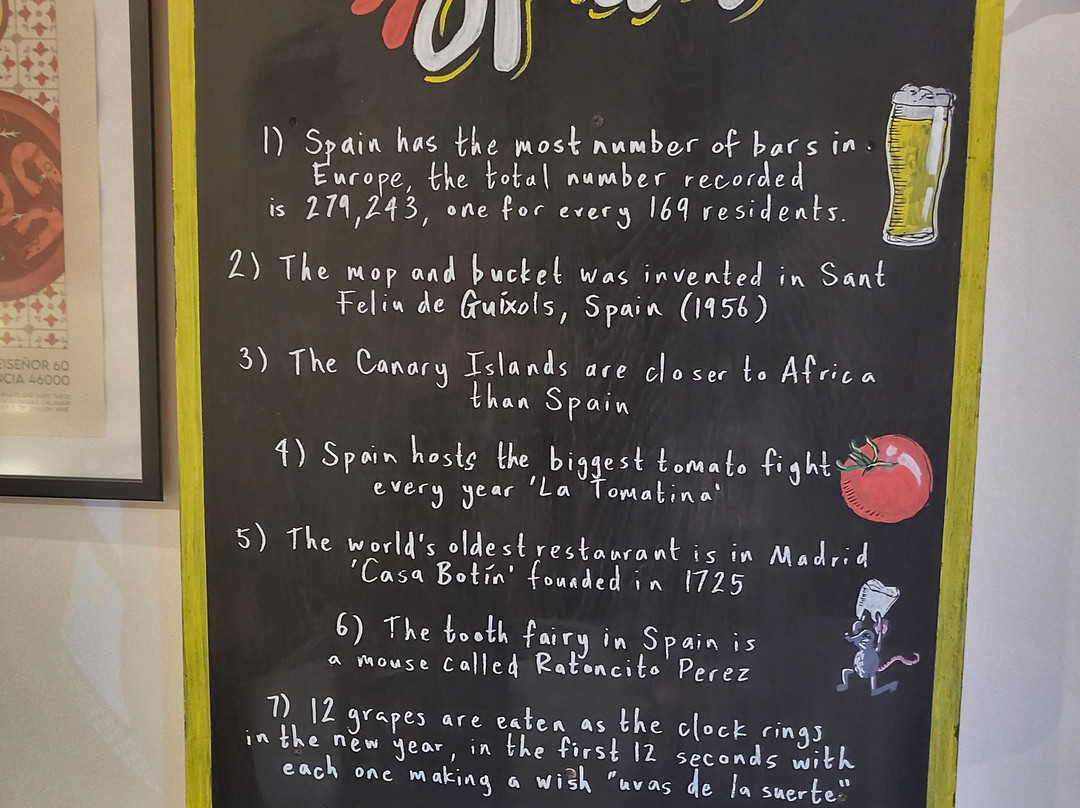 1) Spain has the most number of bars in
Europe, the total number recorded
is 279,243, one for every 169 residents.
2) The mop and bucket was invented in Sant
Feliu de Guíxols, Spain (1956)
3) The Canary Islands are closer to Africa
than Spain
4) Spain hosts the biggest tomato fight
every year 'La Tomatina'
5) The world's oldest restaurant is in Madrid
'Casa Botín' founded in 1725
6) The tooth fairy in Spain is
a mouse called Ratoncito Perez
7) 12 grapes are eaten as the clock rings
in the new year, in the first 12 seconds with
each one making a wish "uvas de la suerte"
EISEÑOR 60
NCIA 46000